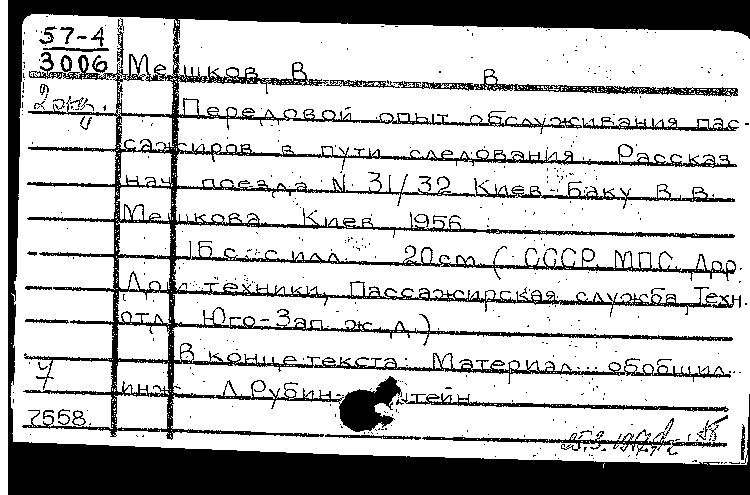 57-4
3006
Мешков, В. В.
2 экз.
Передовой опыт обслуживания пас-
сажиров в пути следования. Рассказ
нач. поезда N 31/32 Киев-Баку В. В.
Мешкова. Киев, 1956.
16 с. с илл. 20 см. (СССР. МПС. Дор.
Дом техники, Пассажирская служба, Техн.
отд. Юго-Зап. ж. д.)
В конце текста: Материал обобщил
инж. Л. Рубинштейн
7
7558.